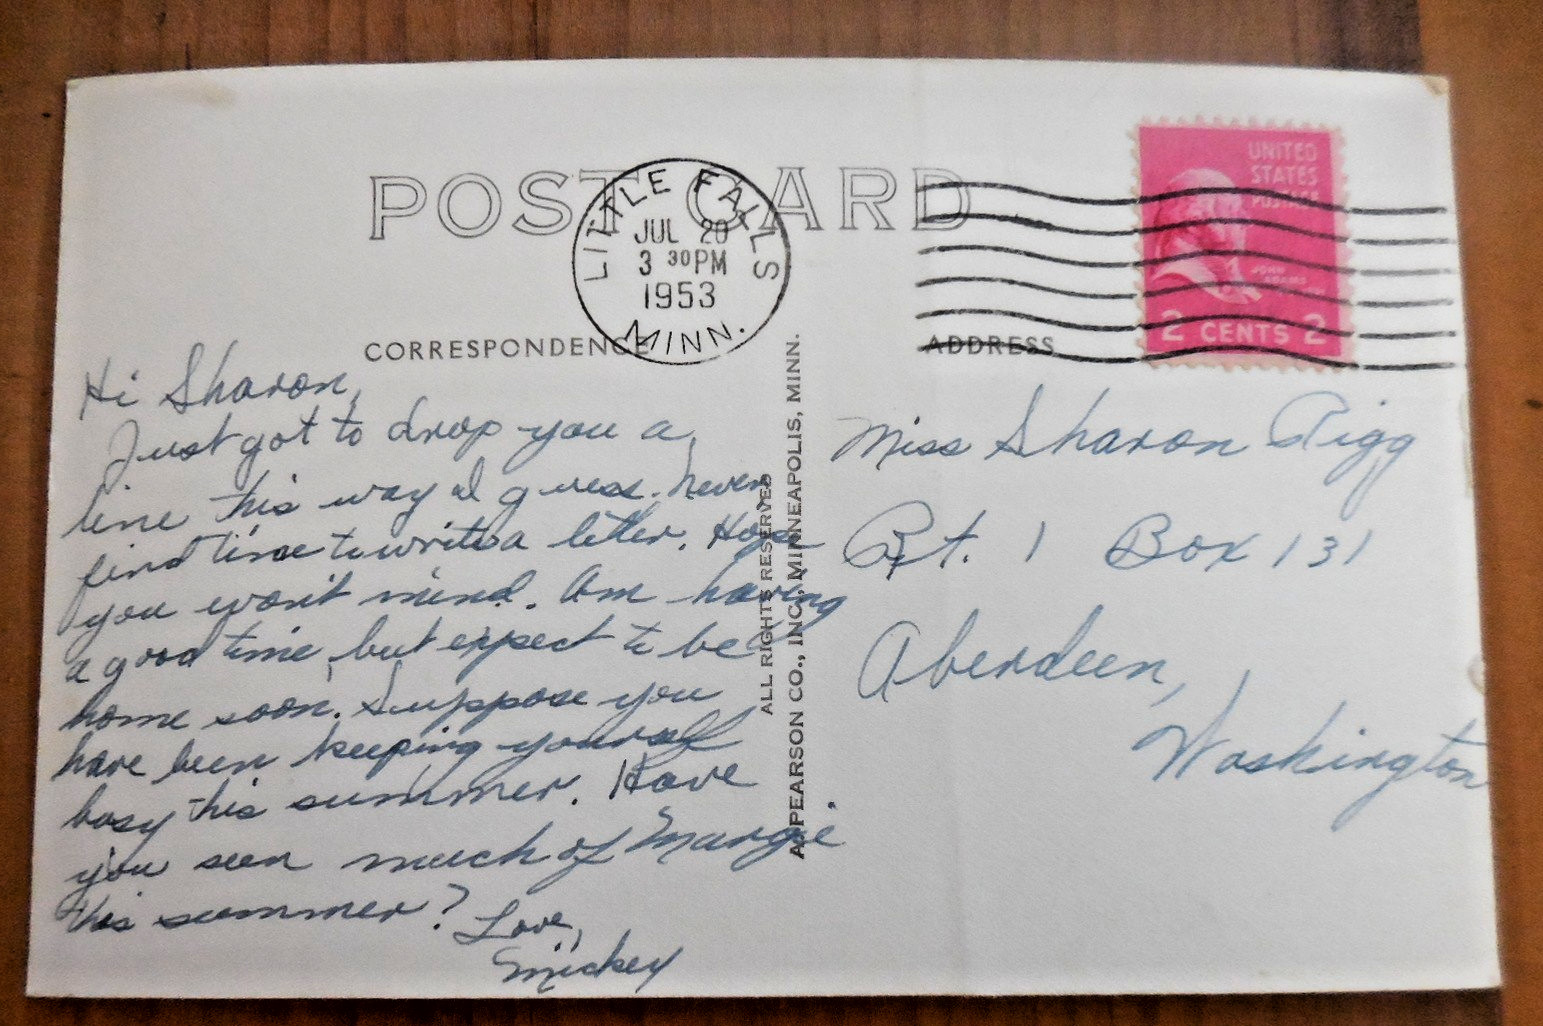 POST CARD
LITTLE FALLS
JUL 20
3 30PM
1953
MINN.
UNITED
STATES
POSTAGE
JOHN
ADAMS
2 CENTS 2
CORRESPONDENCE
ADDRESS
Hi Sharon,
Just got to drop you a
line this way I guess. Never
find time to write a letter. Hope
you won't mind. Am having
a good time, but expect to be
home soon. Suppose you
have been keeping yourself
busy this summer. Have
you seen much of Margie
this summer? Love,
Mickey
ALL RIGHTS RESERVED
A. PEARSON CO., INC., MINNEAPOLIS, MINN.
Miss Sharon Rigg
Rt. 1 Box 131
Aberdeen,
Washington